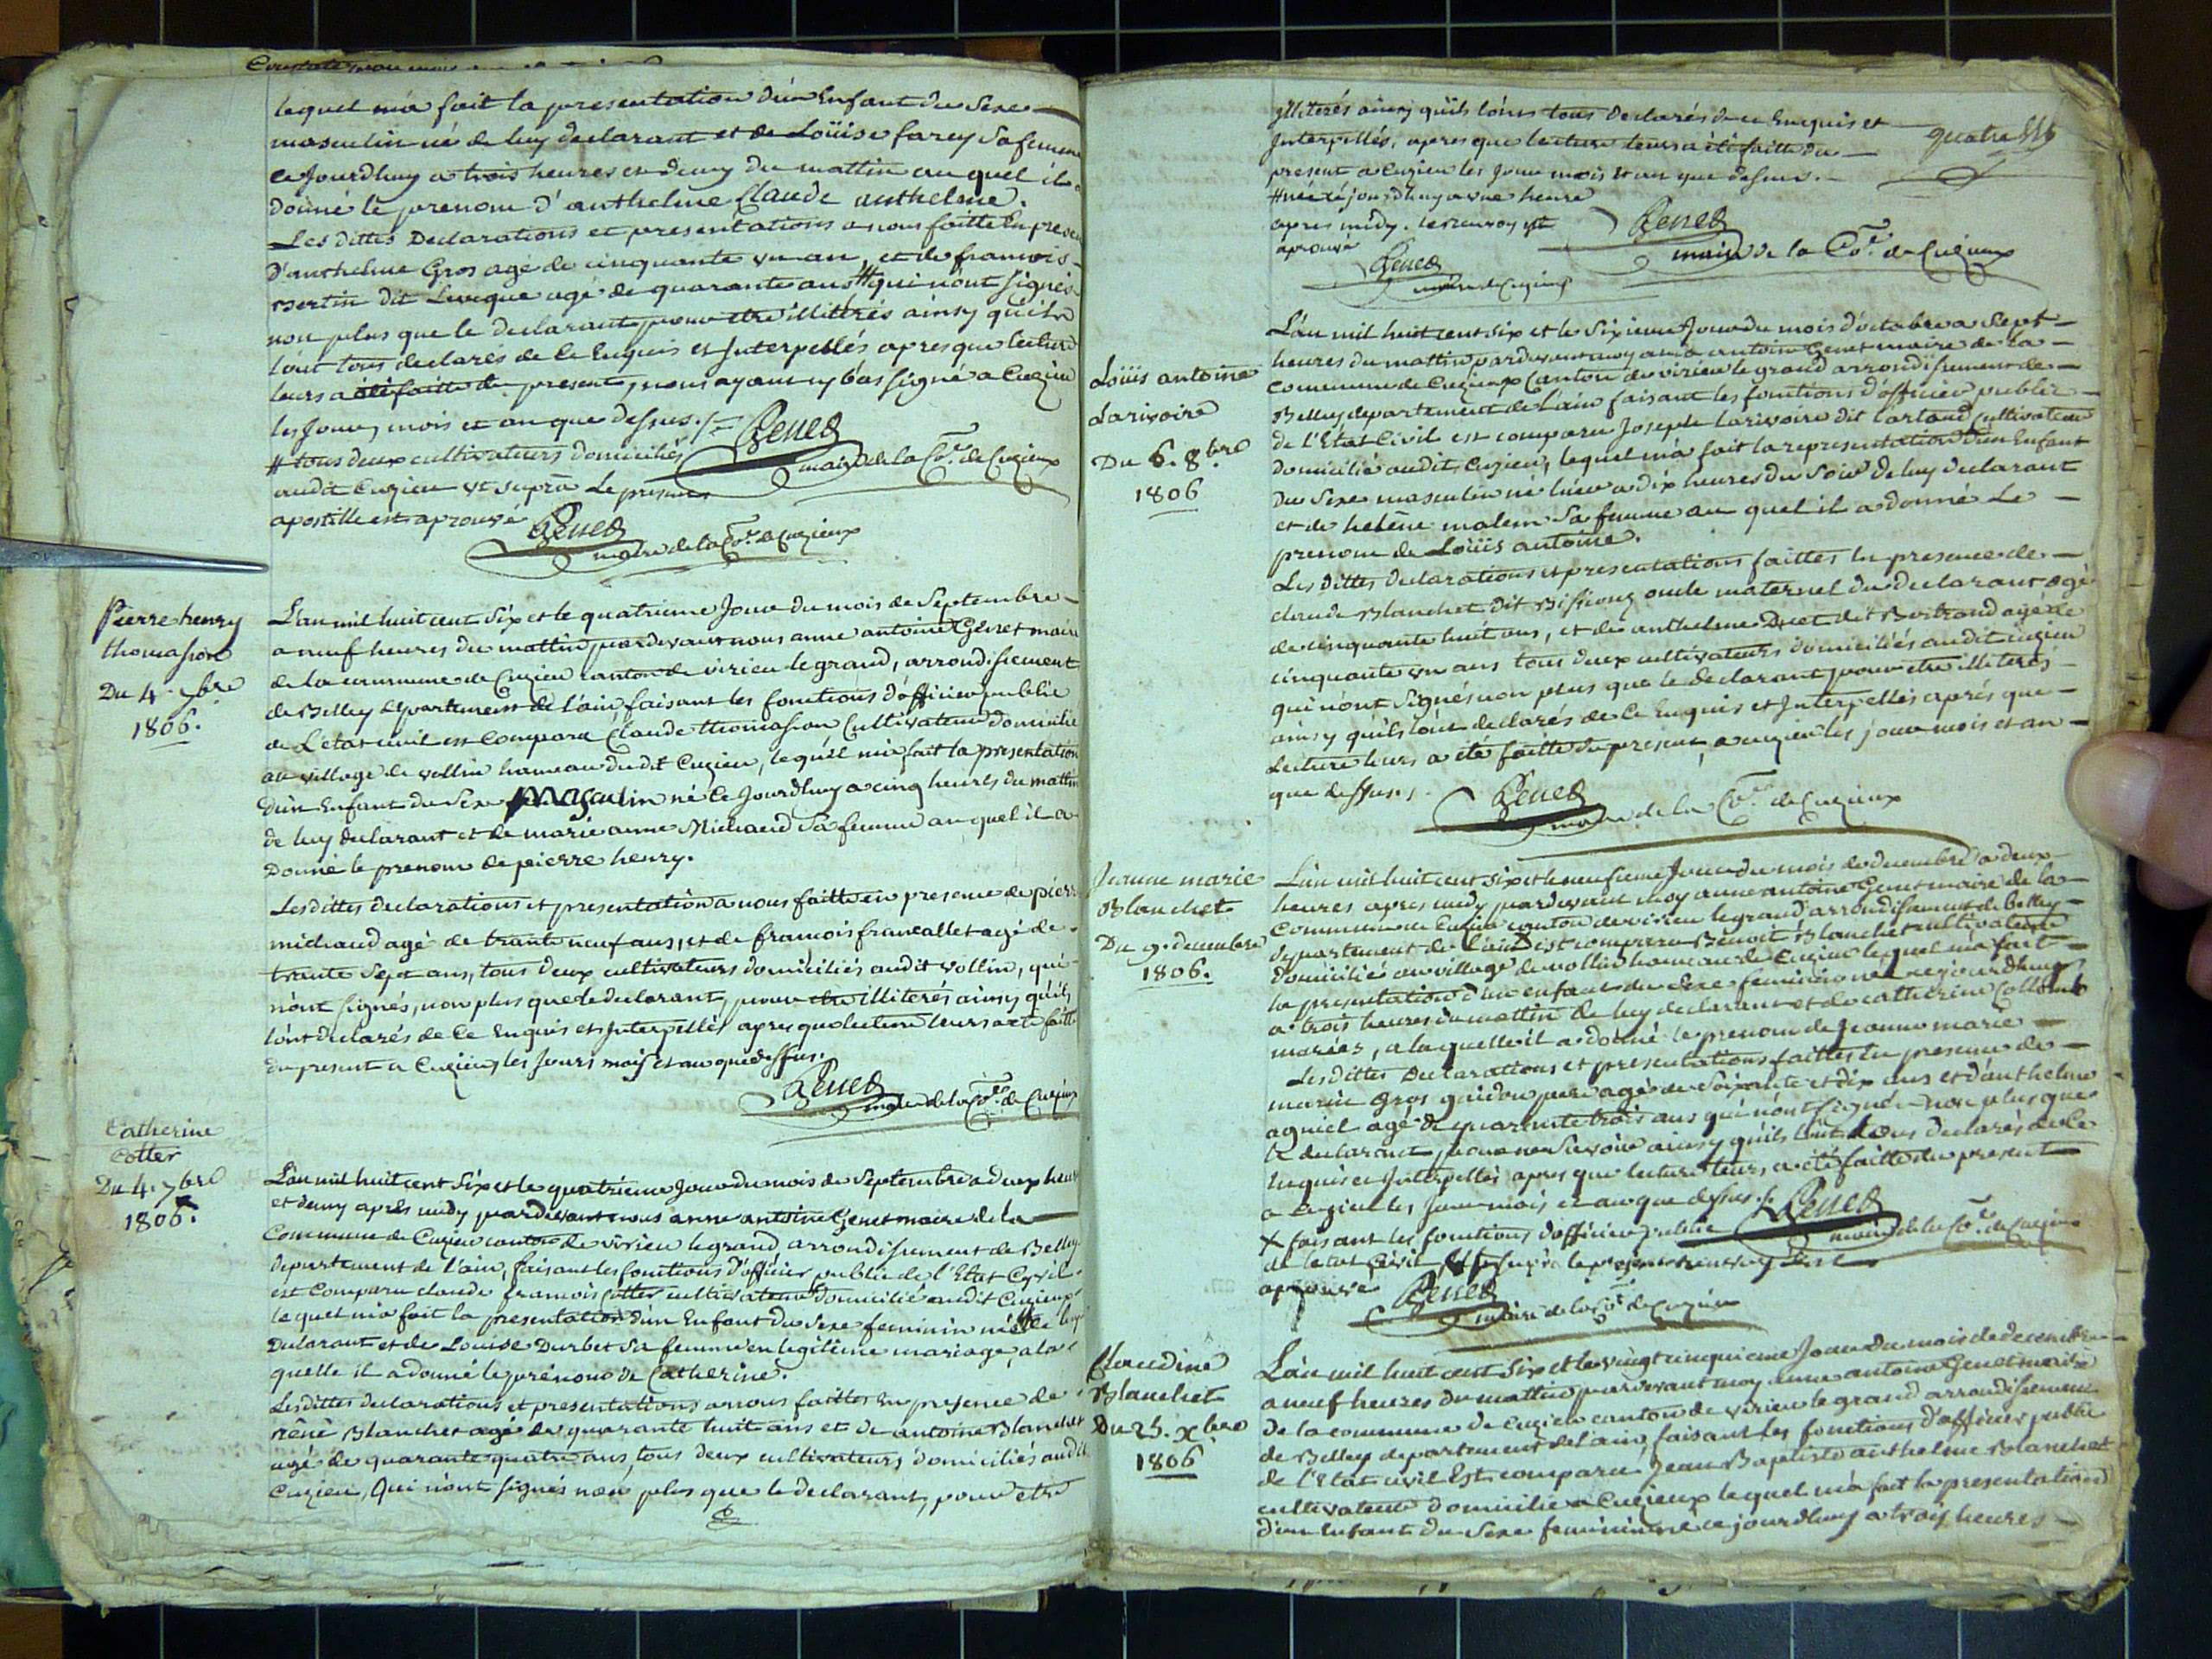 lequel m'a fait la presentation d'un Enfant du Sexe
masculin né de luy declarant et de Loüise farcy Sa femme
ce Jourdhuy a trois heures et demy du mattin au quel il a
donné le prenom d'anthelme Claude anthelme.
Les dittes Declarations et presentations a nous faitte En presence
D'anthelme Gros agé de cinquante un an, et de francois
Bertin dit Leveque agé de quarante ans # qui n'ont signés
non plus que le declarant, pour etre illitérés ainsy qu'ils
l'ont tous declarés de Ce Enquis et Interpellés apres que lecture
leurs a été faitte du present, nous ayant cy bas signé a Cuzieu
les Jour, mois et an que dessus. Genet
# tous deux cultivateurs domiciliés maire de la Cone. de Cuzieux
audit Cuzieu ut supra Le present
apostille est aprouvé Genet
maire de la Cone. de Cuzieux
Pierre henry
thomasson
Du 4. 7bre
1806.
L'an mil huit cent Six et le quatrieme Jour du mois de Septembre
a neuf heures du mattin pardevant nous anne antoine Genet maire
de la commune de Cuzieu canton de virieu le grand, arrondissement
de Belley département de l'ain faisant les fonctions d'officier public
de L'etat civil est Comparu Claude thomasson Cultivateur domicilié
au village de vollin hameau dudit Cuzieu, lequel m'a fait la presentation
d'un Enfant du Sexe Masculin né Ce Jourdhuy a cinq heures du mattin
de luy declarant et de marie anne Michaud Sa femme au quel il a
Donné le prenom de pierre henry.
Les dittes declarations et presentation a nous faitte en presence de pierre
michaud agé de trante neuf ans, et de francois francallet agé de
trante Sept ans, tous deux cultivateurs domiciliés audit vollin, qui
n'ont signés, non plus que le declarant, pour etre illiterés ainsy qu'ils
l'ont declarés de Ce Enquis et Interpellés apres que lecture leurs a été faitte
du present a Cuzieu, les Jours mois et an que dessus.
Genet
maire de la Cone. de Cuzieux
Catherine
Cotter
Du 4. 7bre
1806.
L'an mil huit cent Six et le quatrieme Jour du mois de Septembre a deux heures
et demy aprés midy pardevant nous anne antoine Genet maire de la
Commune de Cuzieu canton de virieu le grand, arrondissement de Belley
departement de l'ain, faisant les fonctions d'officier public de l'Etat Cyvil
est Comparu claude francois Cotter cultivateur domicilié audit Cuzieux
lequel m'a fait la presentation d'un Enfant du Sexe feminin né # de luy
Declarant et de Louise Durbet Sa femme en legitime mariage, a la
quelle il a donné le prénom de Catherine.
Les dittes declarations et presentations a nous faittes En presence de
réné Blanchet agé de quarante huit ans et de antoine Blanchet
agé de quarante quatre ans, tous deux cultivateurs domiciliés audit
Cuzieu, Qui n'ont signés non plus que le declarant, pour etre
illiterés ainsy qu'ils l'onts tous Declarés de ce Enquis et
Interpellés, apres que lecture leurs a été faitte du
present a Cuzieu les Jour mois et an que dessus.
quatre
# né ce jourdhuy a une heure
apres midy. le renvoy est
aprouvé
Genet
maire de la Cone. de Cuzieux
Genet
maire de Cuzieux
Loüis antoine
Larivoire
Du 6. 8bre
1806
L'an mil huit cent six et le Sixieme Jour du mois d'octobre a Sept
heures du mattin pardevant moy anne antoine Genet maire de la
Commune de Cuzieux Canton de virieu le grand arrondissement de
Belley departement de l'ain faisant les fonctions d'officier public
de l'Etat Civil est comparu Joseph Larivoire dit Cultivateur
domicilié audit Cuzieu, lequel m'a fait la representation d'un Enfant
du Sexe masculin né hier a dix heures du Soir de luy declarant
et de heléne malem Sa femme au quel il a donné Le
prenom de Loüis antoine.
Les Dittes declarations et presentations faittes En presence de
claude Blanchet dit oncle maternel du declarant agé
de cinquante huit ans, et de anthelme dit agé de
cinquante un ans tous deux cultivateurs domiciliés audit Cuzieu
qui n'ont Signés non plus que le declarant pour etre illiterés
ainsy qu'ils l'ont declarés de Ce Enquis et Interpellés aprés que
Lecture leurs a été faitte du present, a cuzieu les jour mois et an
que dessus.
Genet
maire de la Cone. de Cuzieux
Jeanne marie
Blanchet
Du 9. decembre
1806.
L'an mil huit cent six et le neufieme Jour du mois de decembre a deux
heures apres midy pardevant moy anne antoine Genet maire de la
Commune de Cuzieu canton de virieu le grand arrondissement de belley
departement de l'ain X est comparu Benoit Blanchet cultivateur
domicilié au village de vollin hameau de Cuzieu lequel m'a fait
la presentation d'un enfant du Sexe feminin né ce jourdhuy
a trois heures du mattin de luy declarant et de catherine Collomb
mariés, a laquelle il a donné le prenom de Jeanne marie
Les dittes Declarations et presentations faittes En presence de
marin Gros agé de Soixante et dix ans et d'anthelme
agniel agé de quarante trois ans qui n'ont signés non plus que
le declarant pour ne Savoir ainsy qu'ils l'ont tous declarés de Ce
Enquis et Interpellés apres que lecture leurs a été faitte du present
a Cuzieu les Jour mois et an que dessus. Genet
X faisant les fonctions d'officier public maire de la Cone. de Cuzieu
de l'etat Civil le present renvoy Est
aprouvé Genet
maire de la Cone de Cuzieu
Claudine
Blanchet
Du 25. Xbre
1806
L'an mil huit cent Six et le vingt cinquieme Jour du mois de decembre
a neuf heures du mattin pardevant moy anne antoine Genet maire
De la commune de Cuzieu canton de virieu le grand arrondissement
de Belley departement de l'ain, faisant les fonctions d'officier public
de l'Etat civil Est comparu Jean Baptiste anthelme Blanchet
cultivateur domicilié a Cuzieux lequel m'a fait la presentation
d'un Enfant du Sexe feminin né ce jourdhuy a trois heures